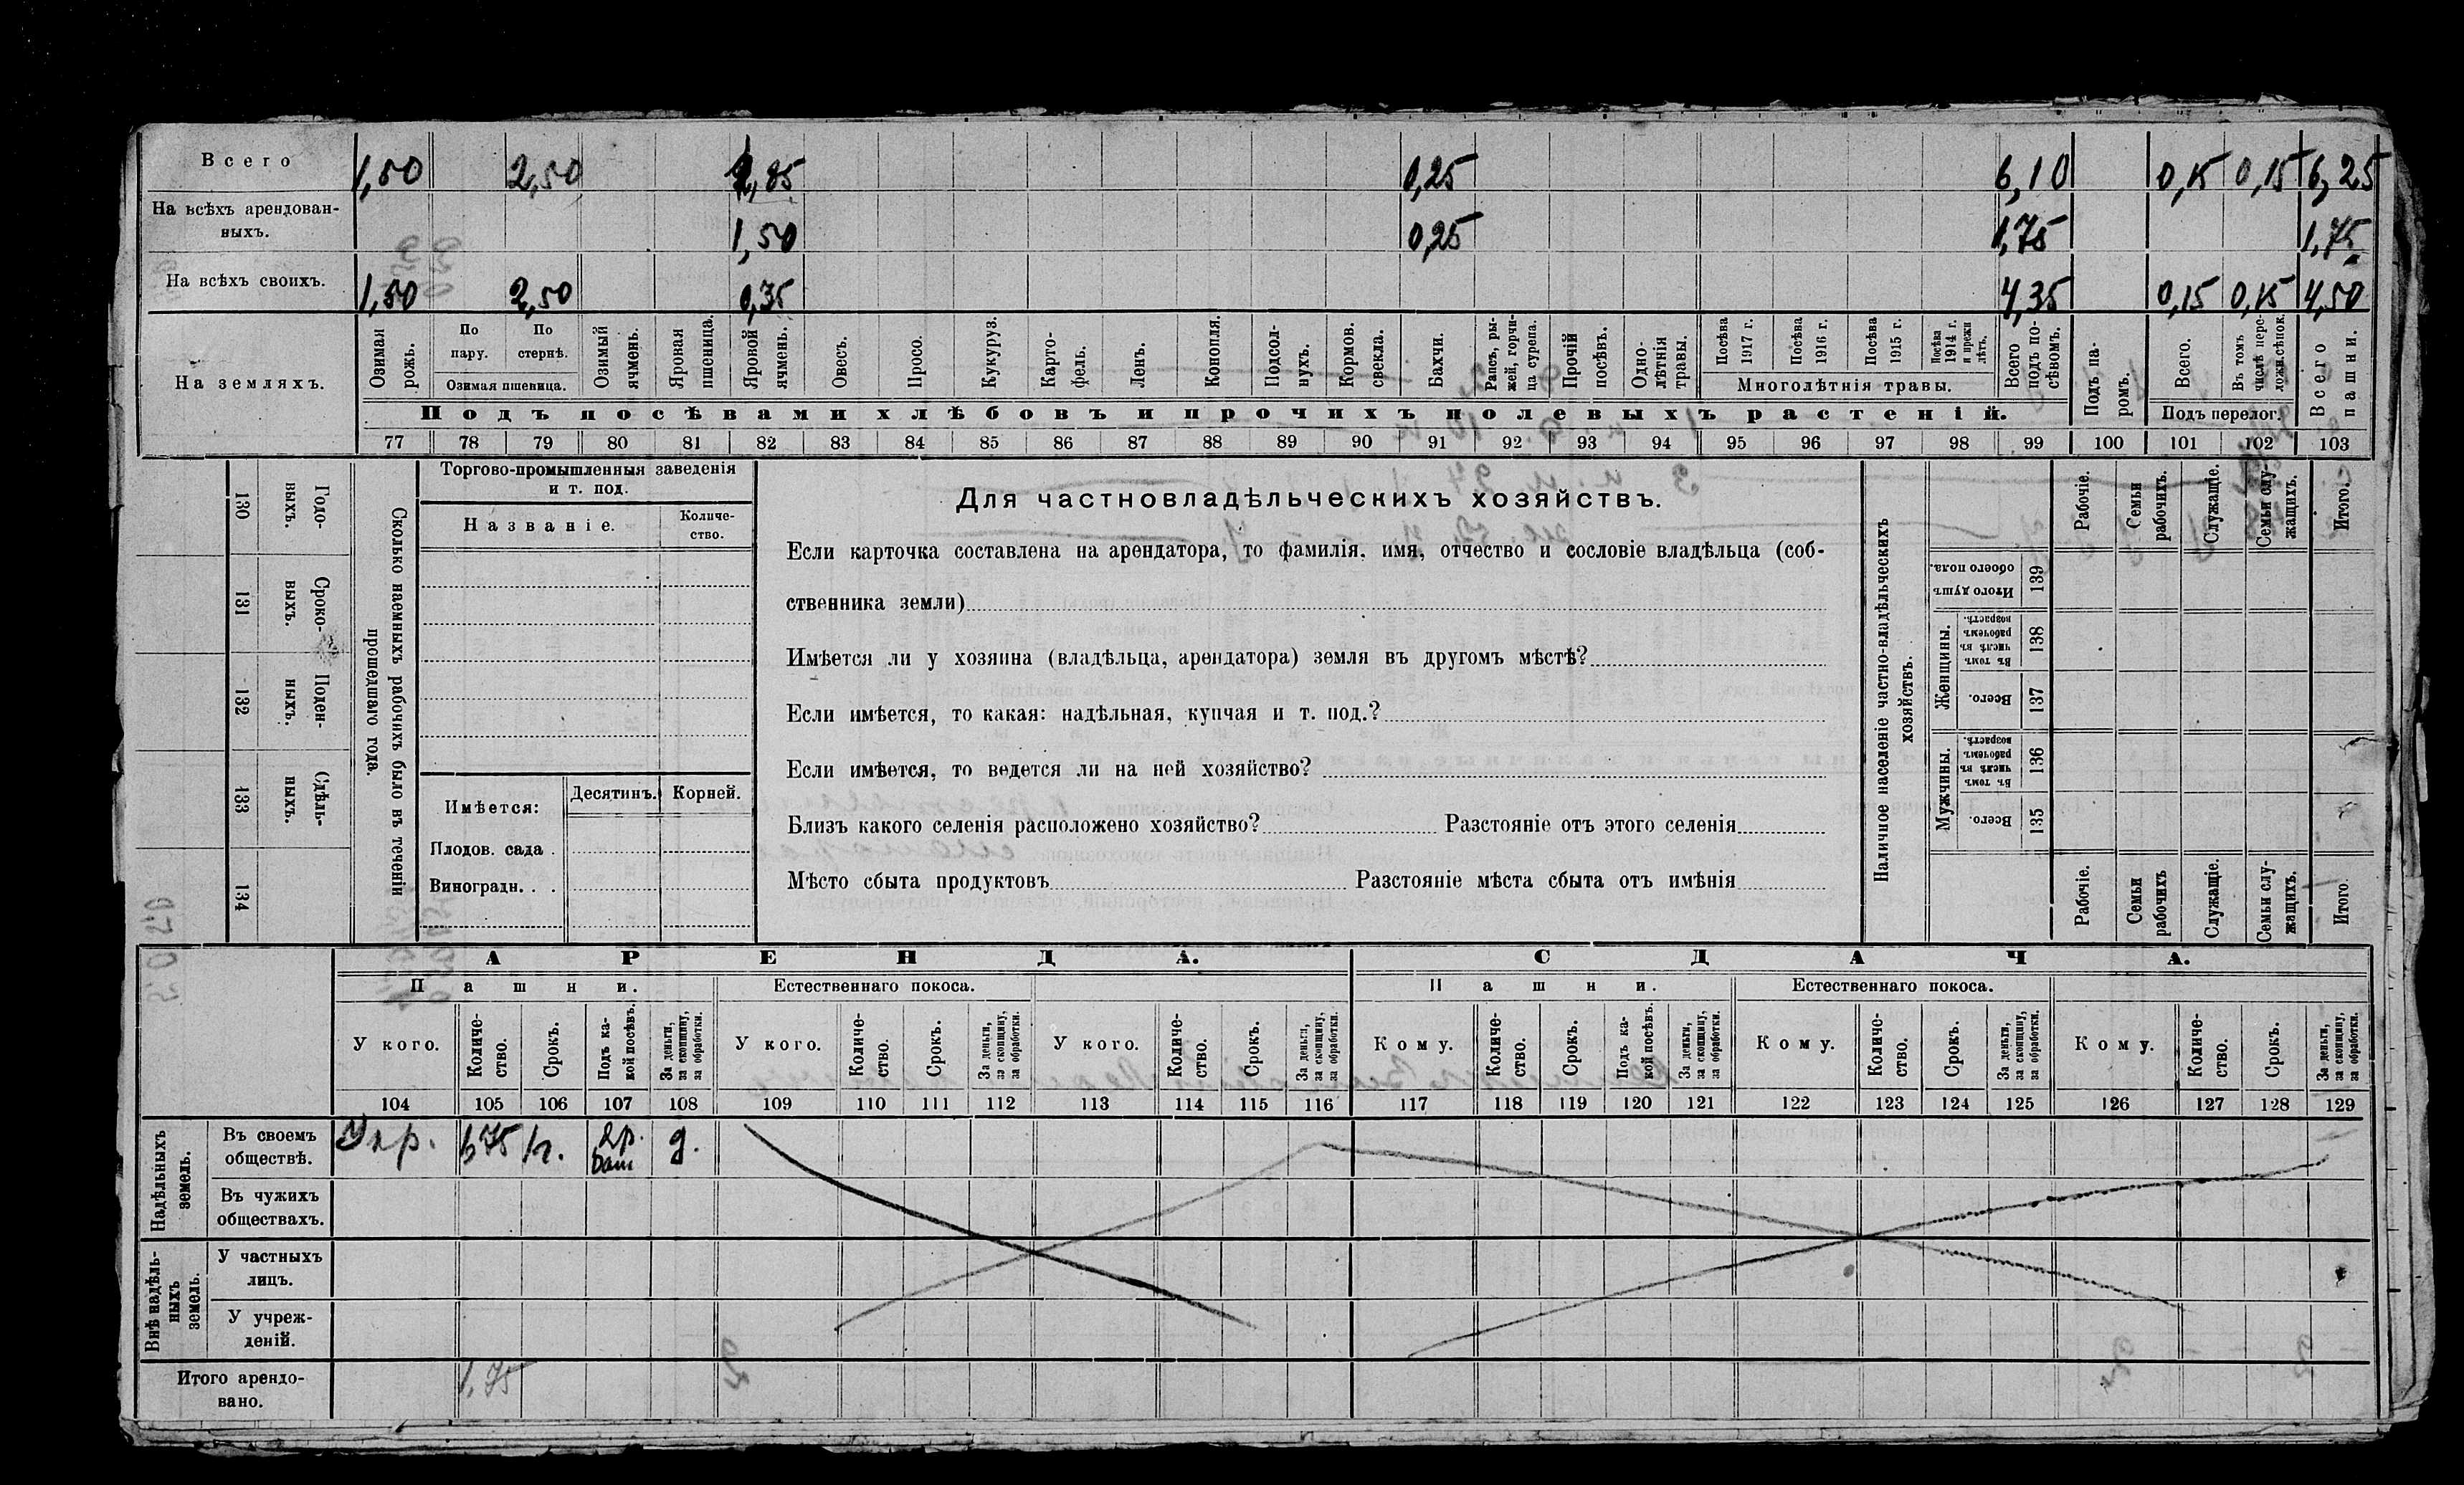 Всего 1,50 2,50 1,85 0,25 6,10 0,15 0,15 6,25
На всѣхъ арендован-
ныхъ. 1,50 0,25 1,75 1,75
На всѣхъ своихъ. 1,50 2,50 0,35 4,35 0,15 0,15 4,50
На земляхъ.
Озимая рожь.
По пару.
По стернѣ.
Озимая пшеница.
Озимый ячмень.
Яровая пшеница.
Яровой ячмень.
Овесъ.
Просо.
Кукуруз.
Карто-
фель.
Ленъ.
Конопля.
Подсол-
нухъ.
Кормов.
свекла.
Бахчи.
Рапсъ, ры-
жей, горчи-
ца сурепа.
Прочій
посѣвъ.
Одно-
лѣтнія
травы.
Посѣва 1917 г.
Посѣва 1916 г.
Посѣва 1915 г.
Посѣва 1914 г. и прежн лѣтъ.
Многолѣтнія травы.
Всего подъ по-
сѣвомъ.
Подъ па-
ромъ.
Всего.
Въ томъ числѣ пере-
ложн.сѣнок.
Подъ перелог.
Всего пашни.
Подъ посѣвами хлѣбовъ и прочихъ полевыхъ растеній.
77 78 79 80 81 82 83 84 85 86 87 88 89 90 91 92 93 94 95 96 97 98 99 100 101 102 103
130 Годо-
выхъ.
131 Сроко-
выхъ.
132 Поден-
ныхъ.
133 Сдѣль-
ныхъ.
134
Сколько наемныхъ рабочихъ было въ теченіи
прошедшаго года.
Торгово-промышленныя заведенія
и т. под.
Названіе.
Количе-
ство.
Имѣется:
Десятинъ.
Корней.
Плодов. сада .
Виноградн. . .
Для частновладѣльческихъ хозяйствъ.
Если карточка составлена на арендатора, то фамилія, имя, отчество и сословіе владѣльца (соб-
ственника земли)
Имѣется ли у хозяина (владѣльца, арендатора) земля въ другомъ мѣстѣ?
Если имѣется, то какая: надѣльная, купчая и т. под.?
Если имѣется, то ведется ли на ней хозяйство?
Близъ какого селенія расположено хозяйство? Разстояніе отъ этого селенія
Мѣсто сбыта продуктовъ Разстояніе мѣста сбыта отъ имѣнія
Наличное населеніе частно-владѣльческихъ
хозяйствъ.
Рабочіе.
Семьи рабочихъ.
Служащіе.
Семьи слу-
жащихъ.
Итого.
Итого душъ обоего пола. 139
Женщины.
Въ томъ числѣ въ рабочемъ возрастѣ. 138
Всего. 137
Мужчины.
Въ томъ числѣ въ рабочемъ возрастѣ. 136
Всего. 135
Рабочіе.
Семьи рабочихъ
Служащіе.
Семьи слу-
жащихъ.
Итого.
АРЕНДА. СДАЧА.
Пашни. Естественнаго покоса. Пашни. Естественнаго покоса.
У кого.
Количе-
ство.
Срокъ.
Подъ ка-
кой посѣвъ.
За деньги, за скопщину, за обработки.
У кого.
Количе-
ство.
Срокъ.
За деньги, за скопщину, за обработки.
У кого.
Количе-
ство.
Срокъ.
За деньги, за скопщину, за обработки.
Кому.
Количе-
ство.
Срокъ.
Подъ ка-
кой посѣвъ.
За деньги, за скопщину, за обработки.
Кому.
Количе-
ство.
Срокъ.
За деньги, за скопщину, за обработки.
Кому.
Количе-
ство.
Срокъ.
За деньги, за скопщину, за обработки.
104 105 106 107 108 109 110 111 112 113 114 115 116 117 118 119 120 121 122 123 124 125 126 127 128 129
Надѣльныхъ
земель.
Въ своемъ
обществѣ. 1,75 1г. д.
Въ чужихъ
обществахъ.
Внѣ надѣль-
ныхъ
земель.
У частныхъ
лицъ.
У учреж-
деній.
Итого арендо-
вано. 1,75